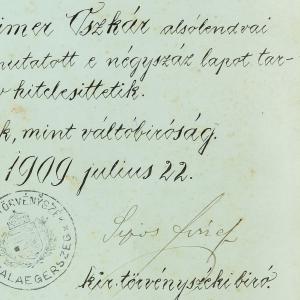 imer Oszkár alsólendvai
mutatott e négyszáz lapot tar-
hitelesittetik.
k, mint váltóbiróság.
1909 julius 22.
TÖRVÉNYSZÉK
ZALAEGERSZEG
József
kir. törvényszéki biró.